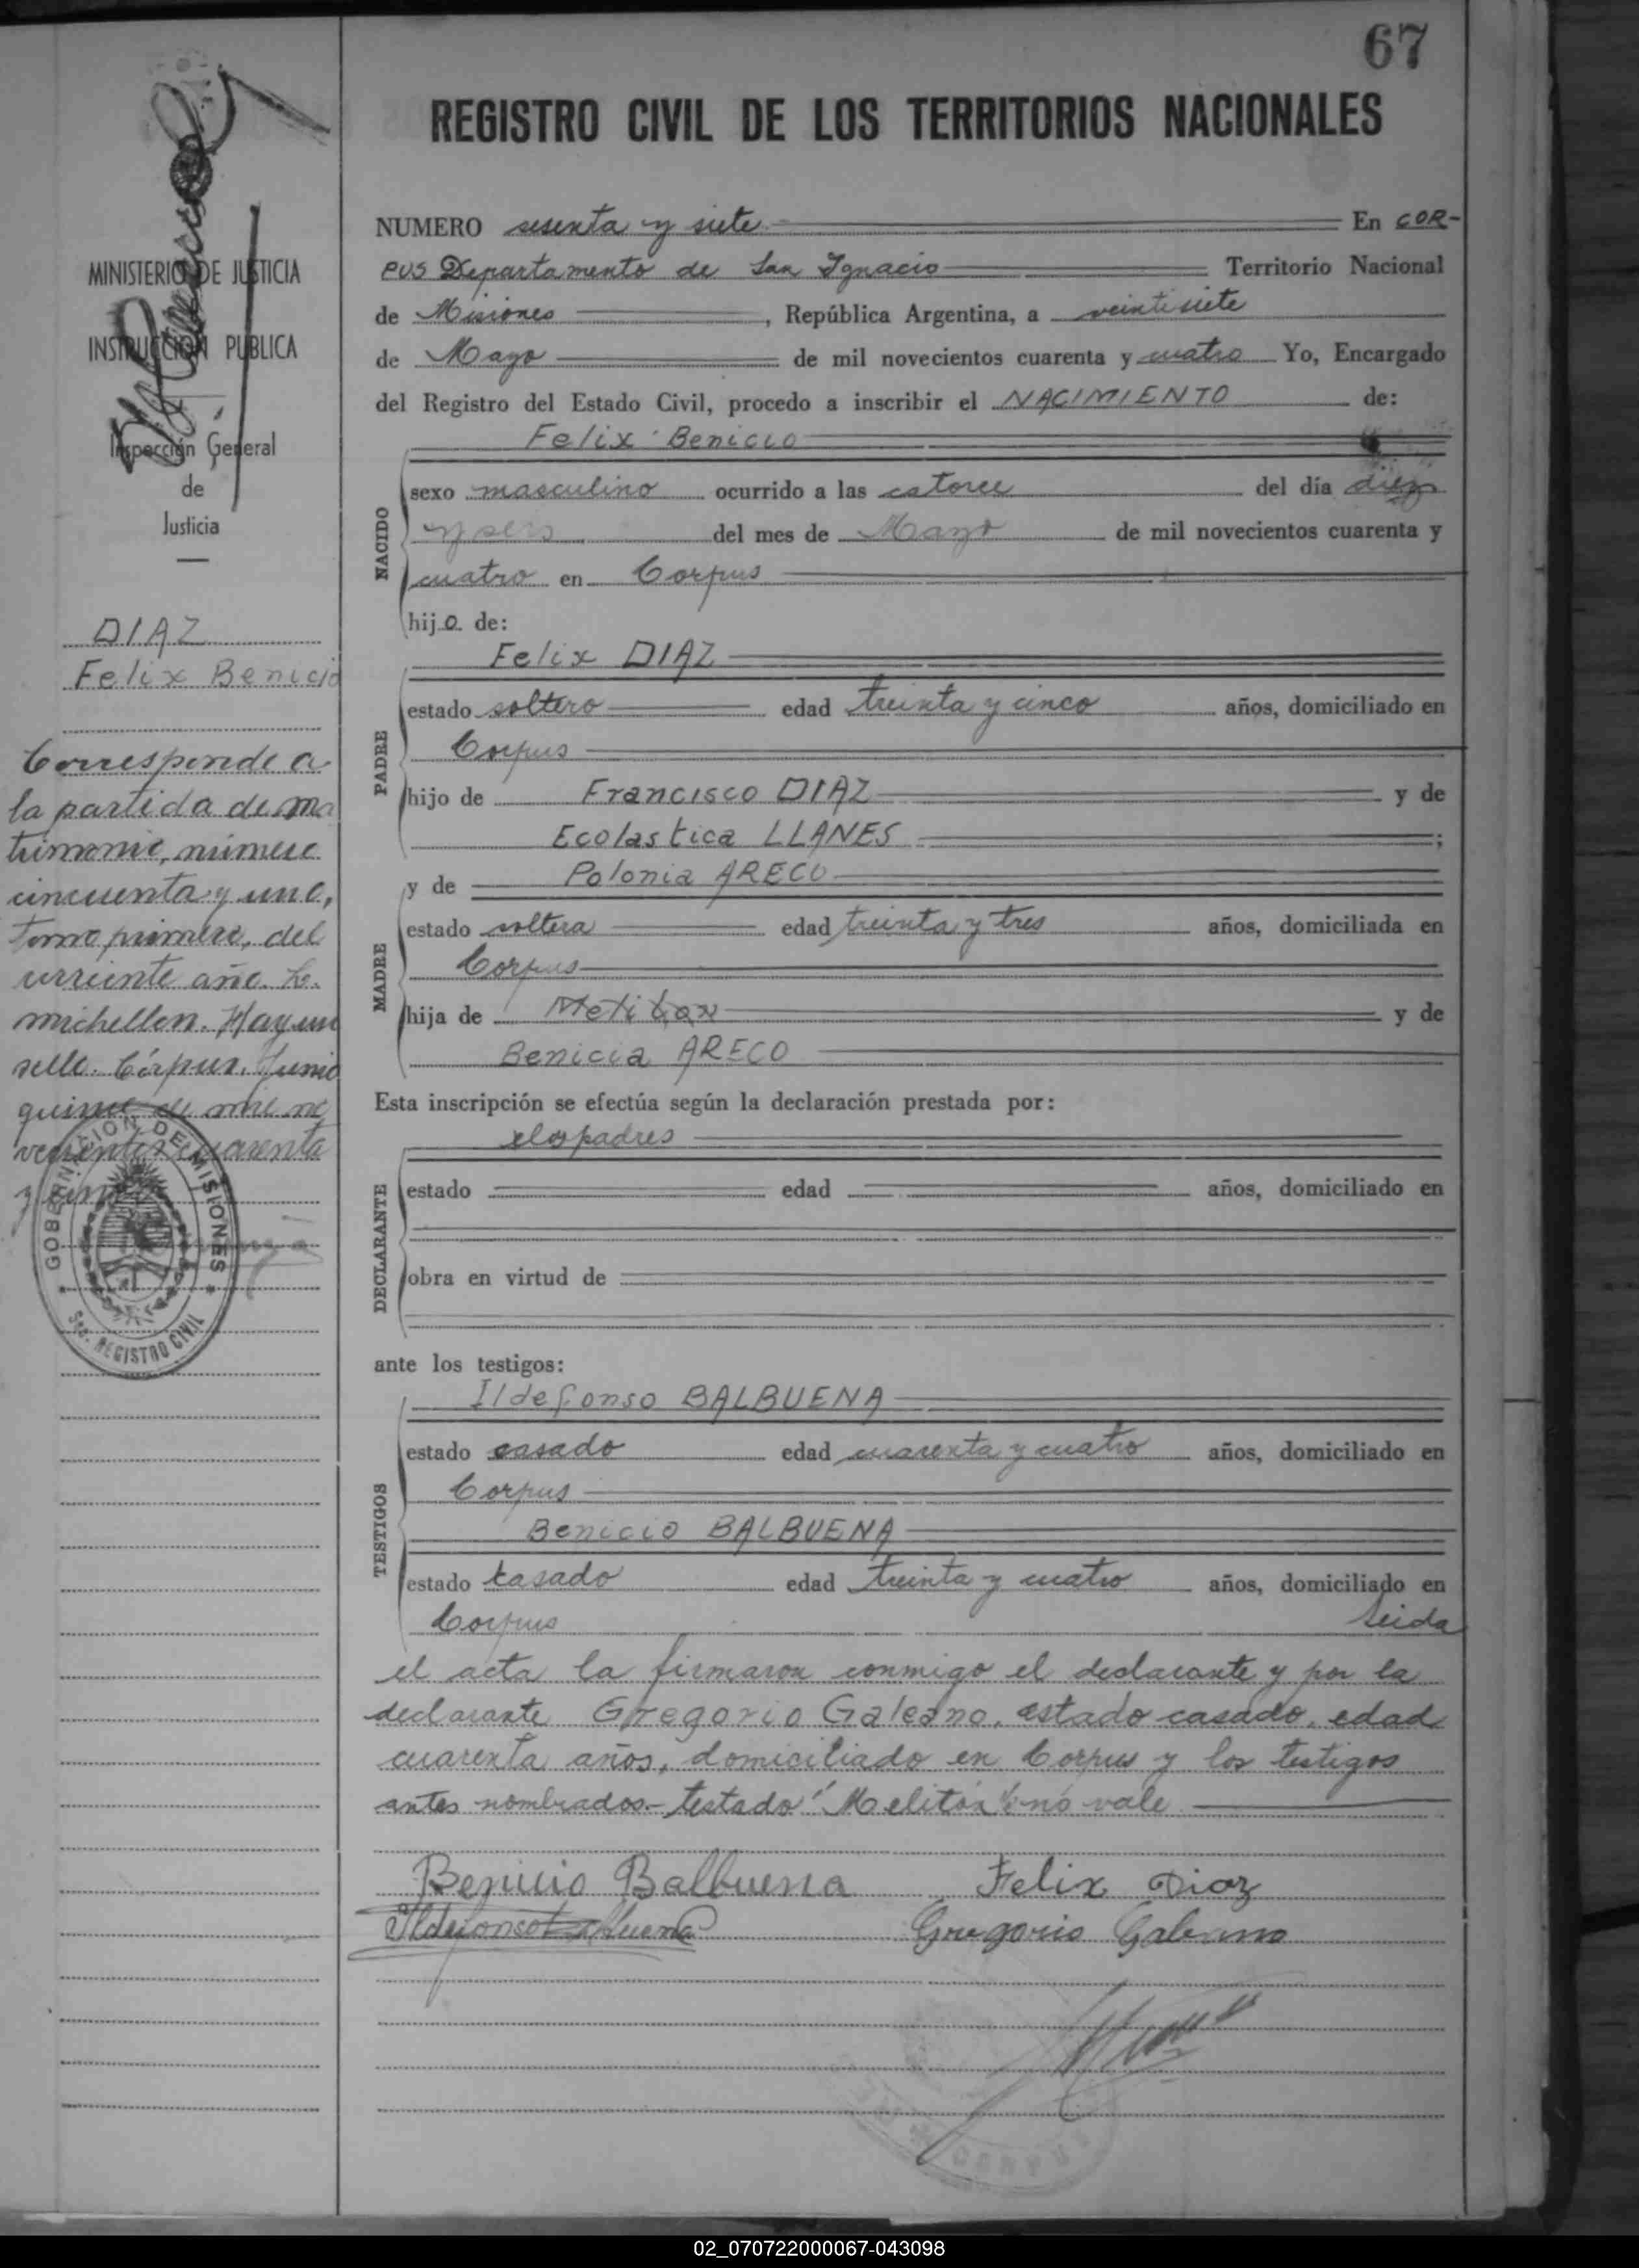 67
REGISTRO CIVIL DE LOS TERRITORIOS NACIONALES
MINISTERIO DE JUSTICIA
INSTRUCCIÓN PUBLICA
Inspección General
de
Justicia
DIAZ
Felix Benicio
Corresponde a
la partida de ma
trimonio, número
cincuenta y uno,
tomo primero, del
corriente año. L.
Michellon. Hay un
sello. Córpus. Junio
quince de mil no
vecientos cuarenta
y
GOBERNACION DE MISIONES
Sec. REGISTRO CIVIL
NUMERO sesenta y siete En COR-
PUS Departamento de San Ignacio Territorio Nacional
de Misiones, República Argentina, a veintisiete
de Mayo de mil novecientos cuarenta y cuatro Yo, Encargado
del Registro del Estado Civil, procedo a inscribir el NACIMIENTO de:
Felix Benicio
NACIDO
sexo masculino ocurrido a las catorce del día diez
y seis del mes de Mayo de mil novecientos cuarenta y
cuatro en Corpus
hijo de:
Felix DIAZ
PADRE
estado soltero edad treinta y cinco años, domiciliado en
Corpus
hijo de Francisco DIAZ y de
Ecolastica LLANES ;
y de Polonia ARECO
MADRE
estado soltera edad treinta y tres años, domiciliada en
Corpus
hija de y de
Benicia ARECO
Esta inscripción se efectúa según la declaración prestada por:
los padres
DECLARANTE
estado edad años, domiciliado en
obra en virtud de
ante los testigos:
Ildefonso BALBUENA
TESTIGOS
estado casado edad cuarenta y cuatro años, domiciliado en
Corpus
Benicio BALBUENA
estado casado edad treinta y cuatro años, domiciliado en
Corpus Leida
el acta la firmaron conmigo el declarante y por la
declarante Gregorio Galeano, estado casado, edad
cuarenta años, domiciliado en Corpus y los testigos
antes nombrados.- testado "Melitón": no vale
Benicio Balbuena Felix Diaz
Ildefonso Balbuena Gregorio Galeano
02_070722000067-043098